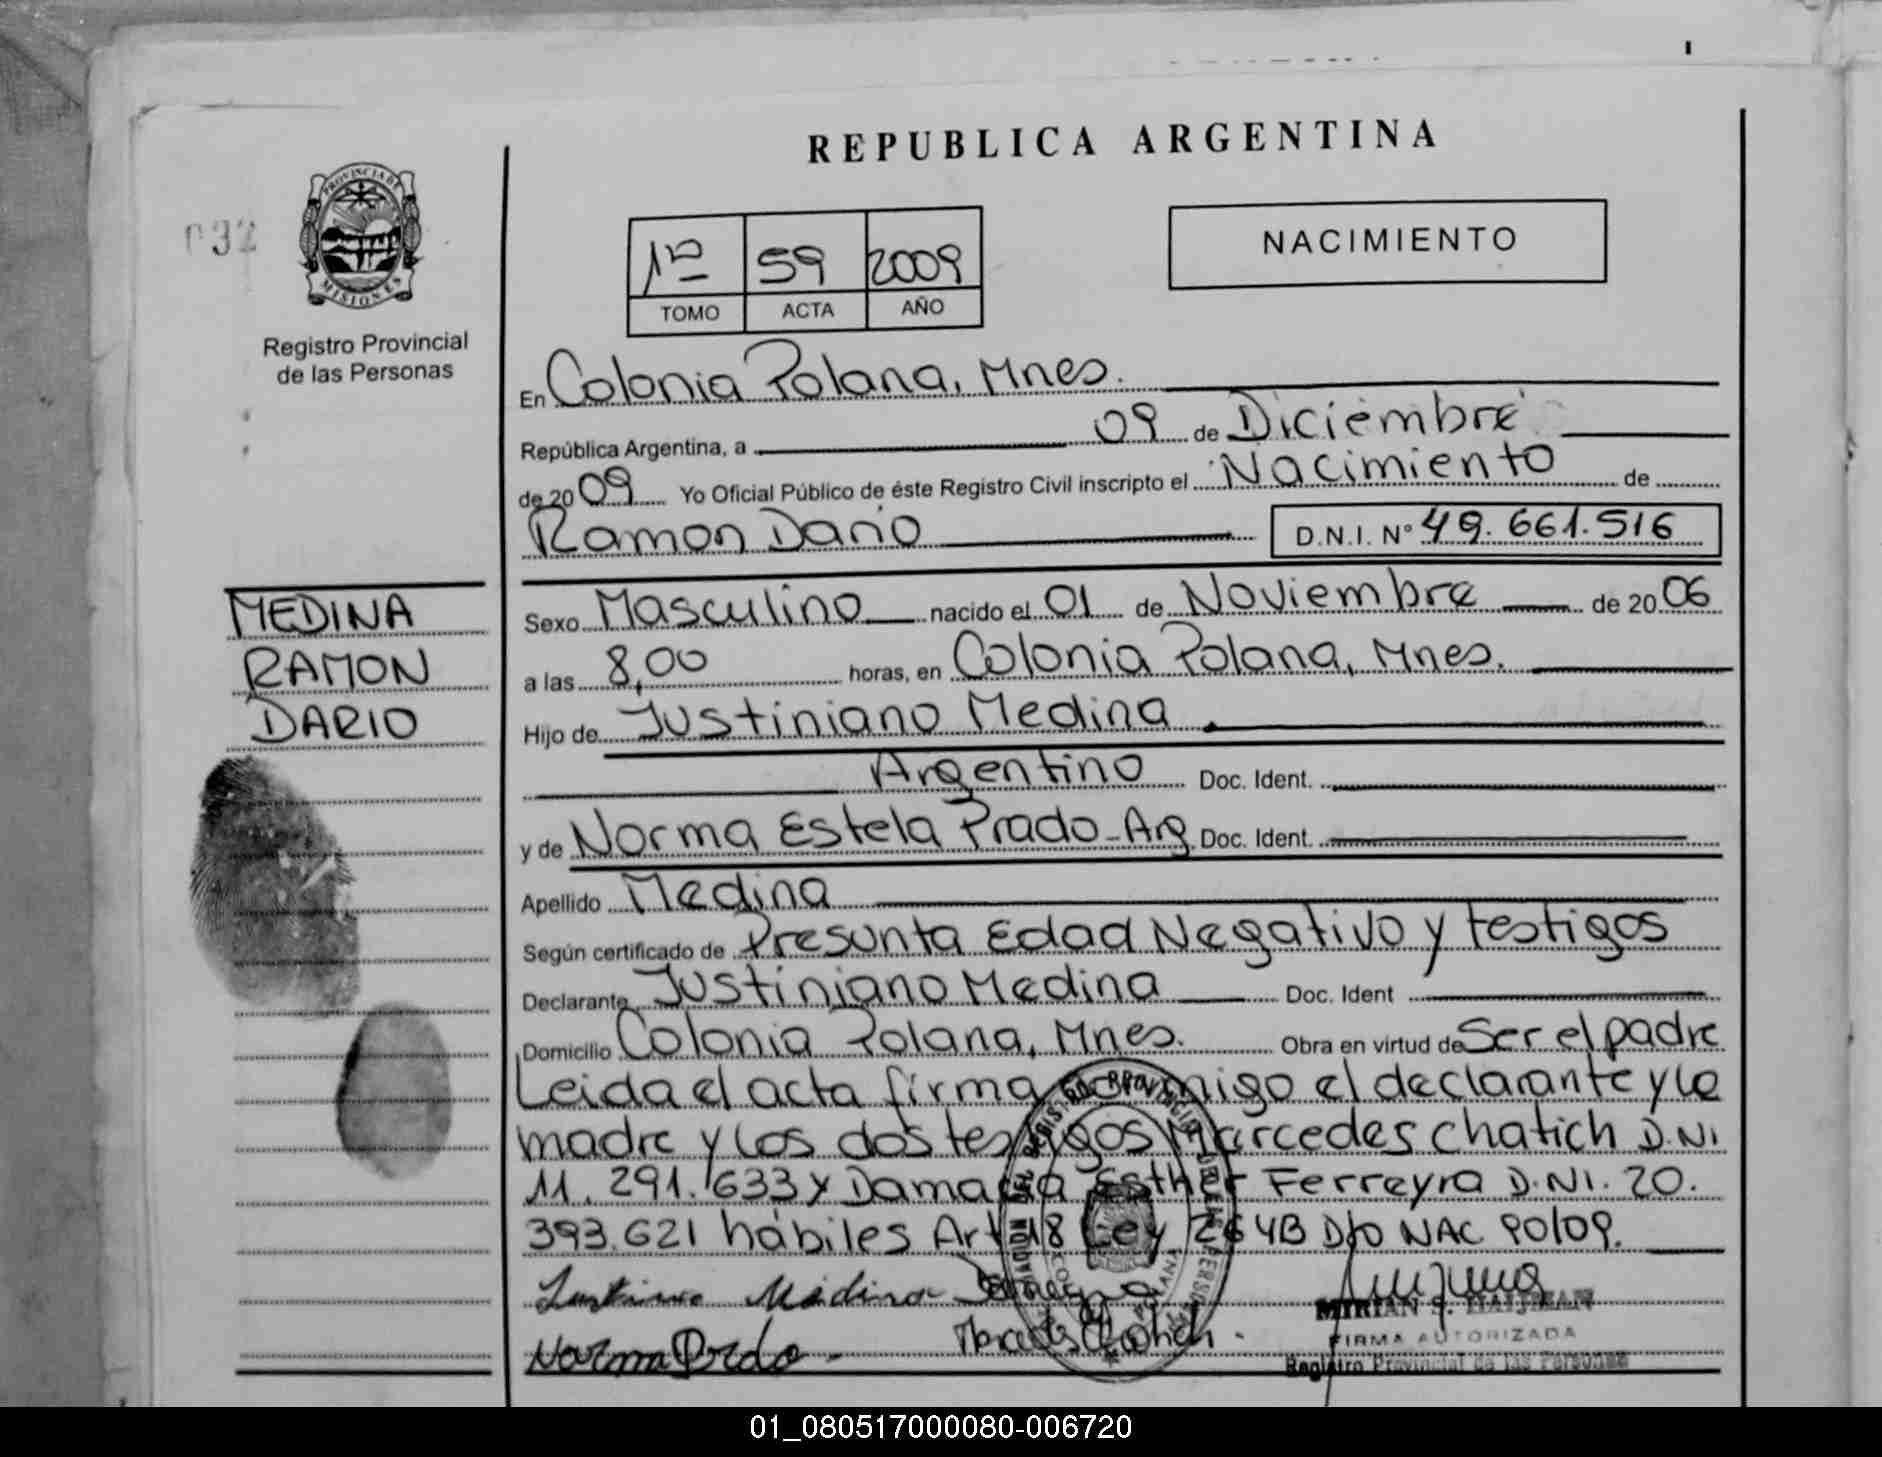 REPUBLICA ARGENTINA
032
PROVINCIA DE
MISIONES
Registro Provincial
de las Personas
1º 59 2009
TOMO ACTA AÑO
NACIMIENTO
En Colonia Polana, Mnes.
República Argentina, a 09 de Diciembre
de 2009 Yo Oficial Público de éste Registro Civil inscripto el Nacimiento de
Ramon Dario D.N.I. Nº 49.661.516
MEDINA
RAMON
DARIO
Sexo Masculino nacido el 01 de Noviembre de 2006
a las 8,00 horas, en Colonia Polana, Mnes.
Hijo de Justiniano Medina
Argentino Doc. Ident.
y de Norma Estela Prado - Arg Doc. Ident.
Apellido Medina
Según certificado de Presunta Edad Negativo y testigos
Declarante Justiniano Medina Doc. Ident
Domicilio Colonia Polana, Mnes. Obra en virtud de Ser el padre
Leida el acta firma conmigo el declarante y la
madre y los dos testigos Marcedes Chatich D.NI
11.291.633 y Damacia Esther Ferreyra D.NI. 20.
393.621 hábiles Art 18 Ley D/o NAC 90/09.
Medina
Norma Prdo
MIRIAN
FIRMA AUTORIZADA
Registro Provincial de las Personas
01_080517000080-006720